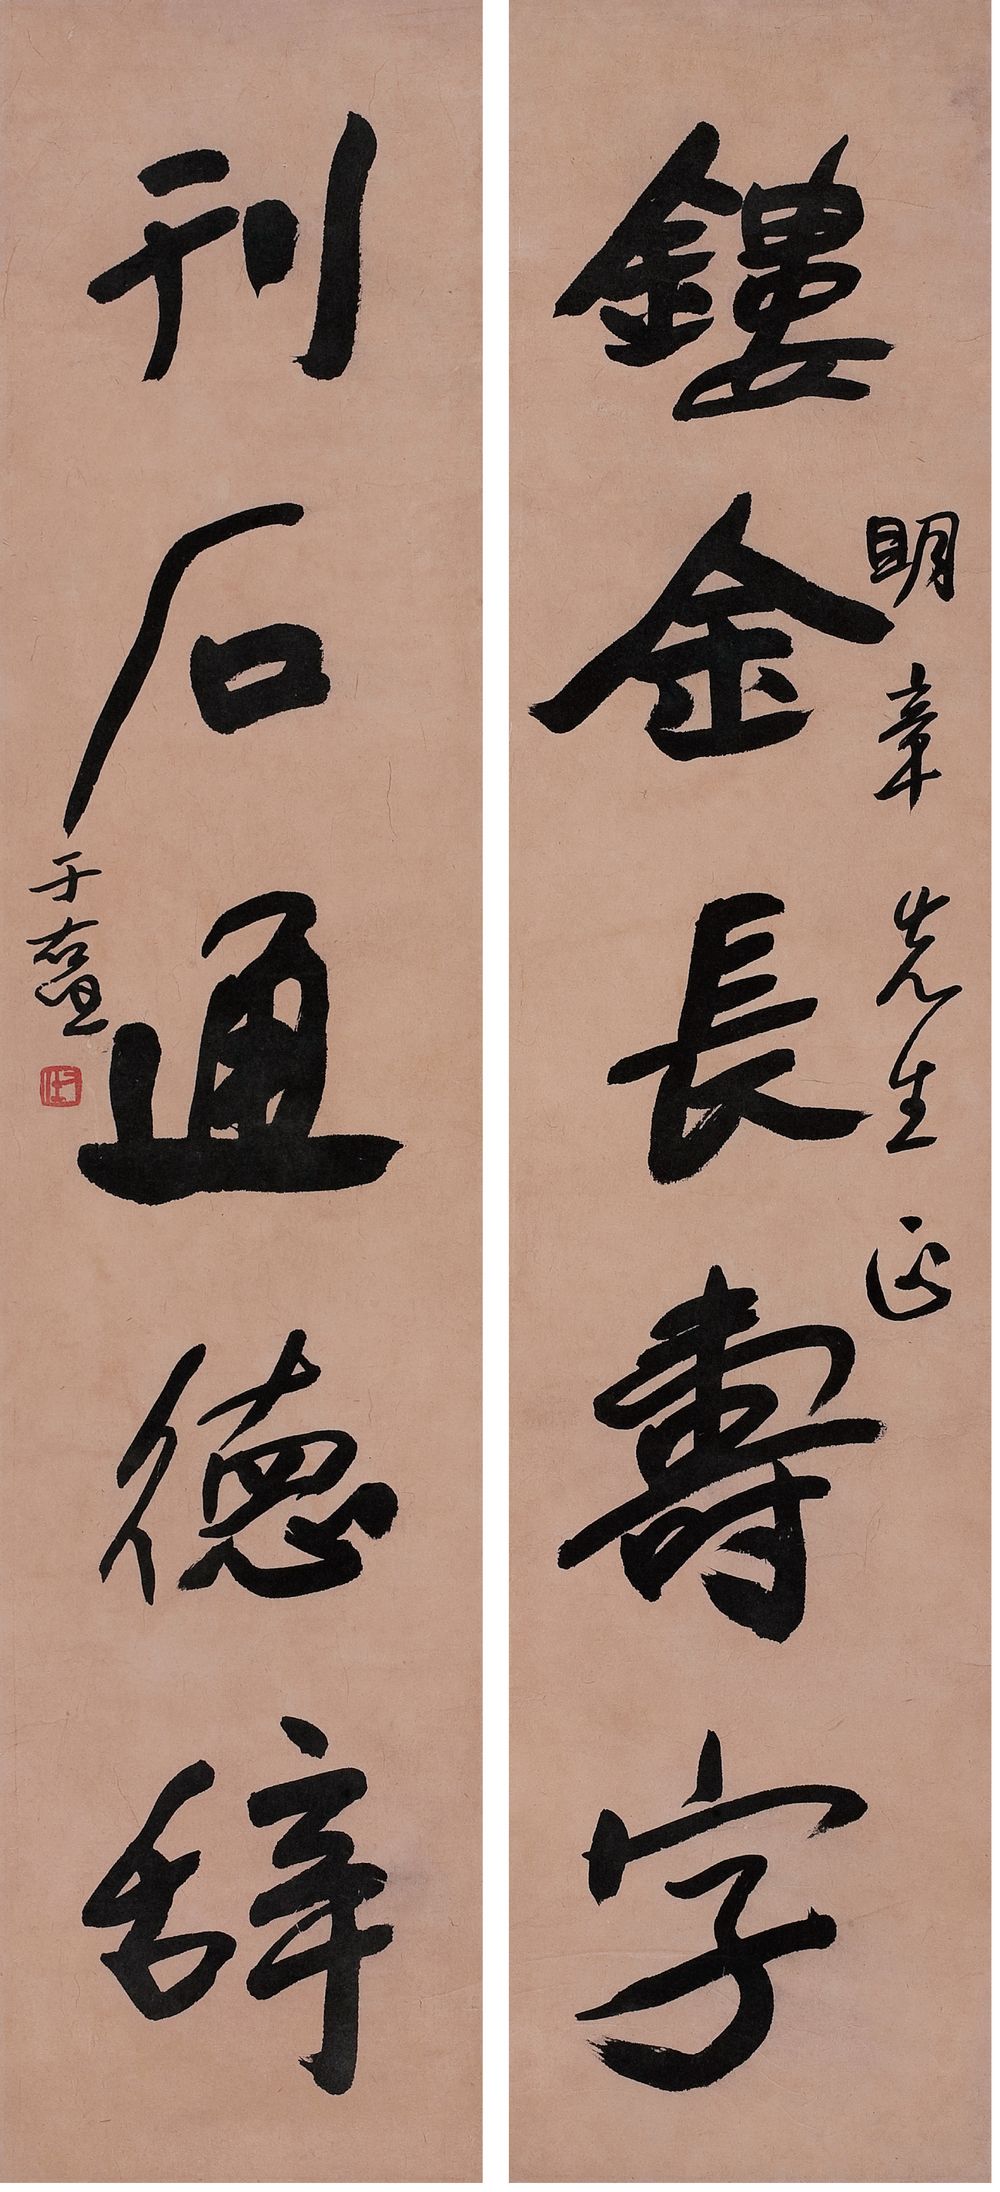 鏤金長壽字
眀章先生正
刊石通徳辞
于右任